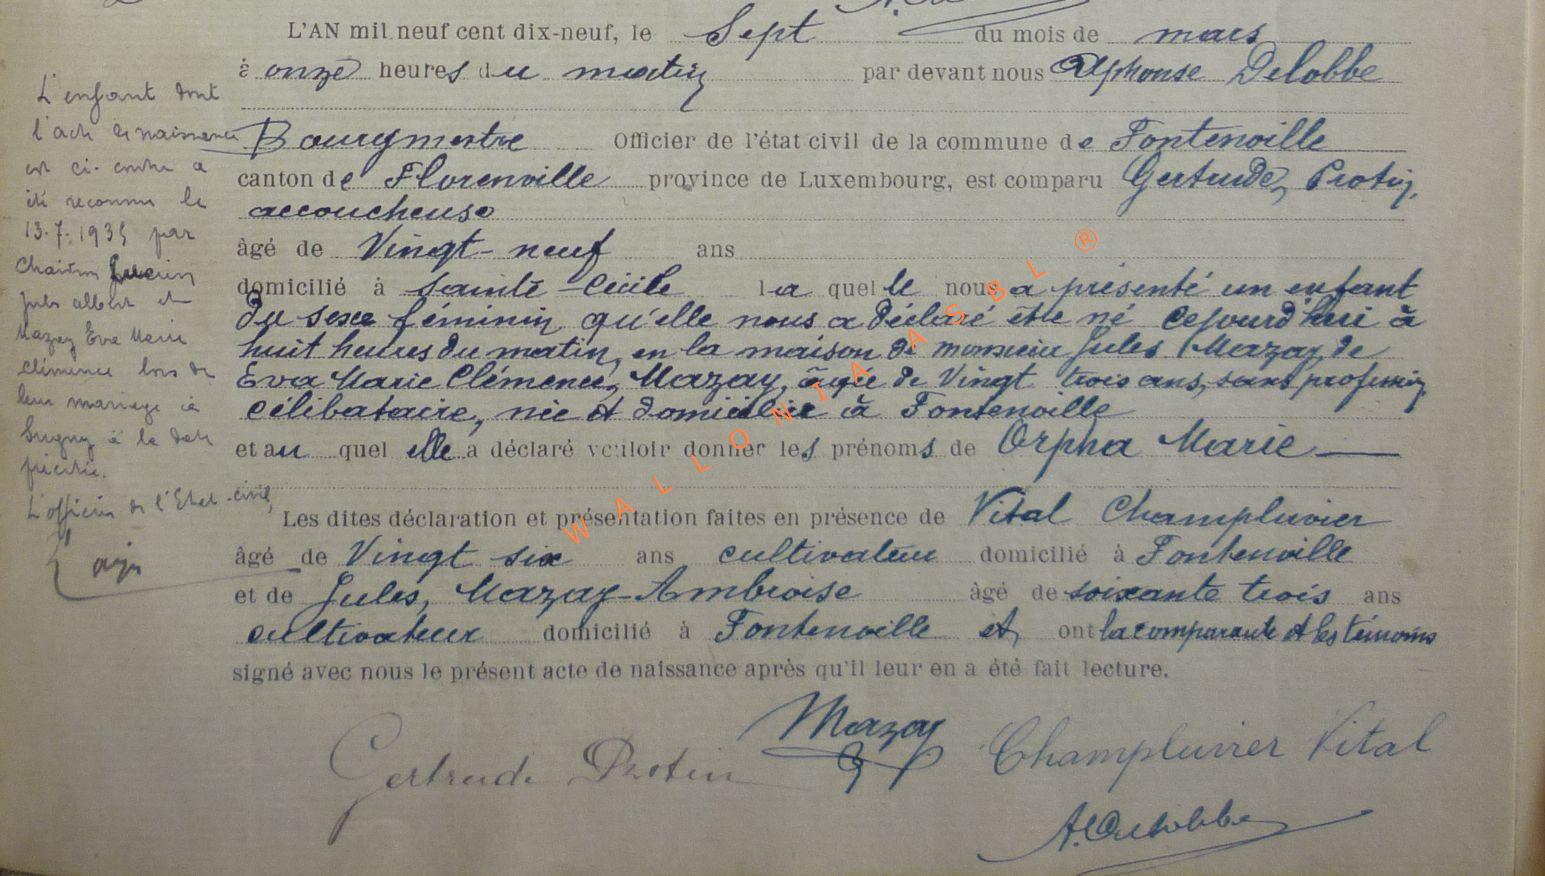 L'AN mil neuf cent dix-neuf, le Sept du mois de mars
à onze heures du matin par devant nous Alphonse Delobbe
Bourgmestre Officier de l'état civil de la commune de Fontenoille
canton de Florenville province de Luxembourg, est comparu Gertrude, Protin,
accoucheuse
âgé de Vingt-neuf ans
domicilié à Sainte-Cécile laquelle nous a présenté un enfant
du sexe féminin qu'elle nous a déclaré être né cejourd'hui à
huit heures du matin, en la maison de monsieur Jules Mazay, de
Eva Marie Clémence, Mazay, âgée de Vingt trois ans, sans profession,
célibataire, née et domiciliée à Fontenoille
et au quel elle a déclaré vouloir donner les prénoms de Orpha Marie
Les dites déclaration et présentation faites en présence de Vital Champluvier
âgé de Vingt six ans cultivateur domicilié à Fontenoille
et de Jules, Mazay-Ambroise âgé de soixante trois ans
cultivateur domicilié à Fontenoille et, ont la comparante et les témoins
signé avec nous le présent acte de naissance après qu'il leur en a été fait lecture.
Mazay
Gertrude Protin
Champluvier Vital
A. Delobbe
L'enfant dont
l'acte de naissance
est ci-contre a
été reconnu le
13.7.1935 par
Lucien
Jules Albert et
Mazay Eva Marie
Clémence lors de
leur mariage à
Sugny à la date
précitée.
L'officier de l'Etat-civil,
WALLONIA ASBL ®